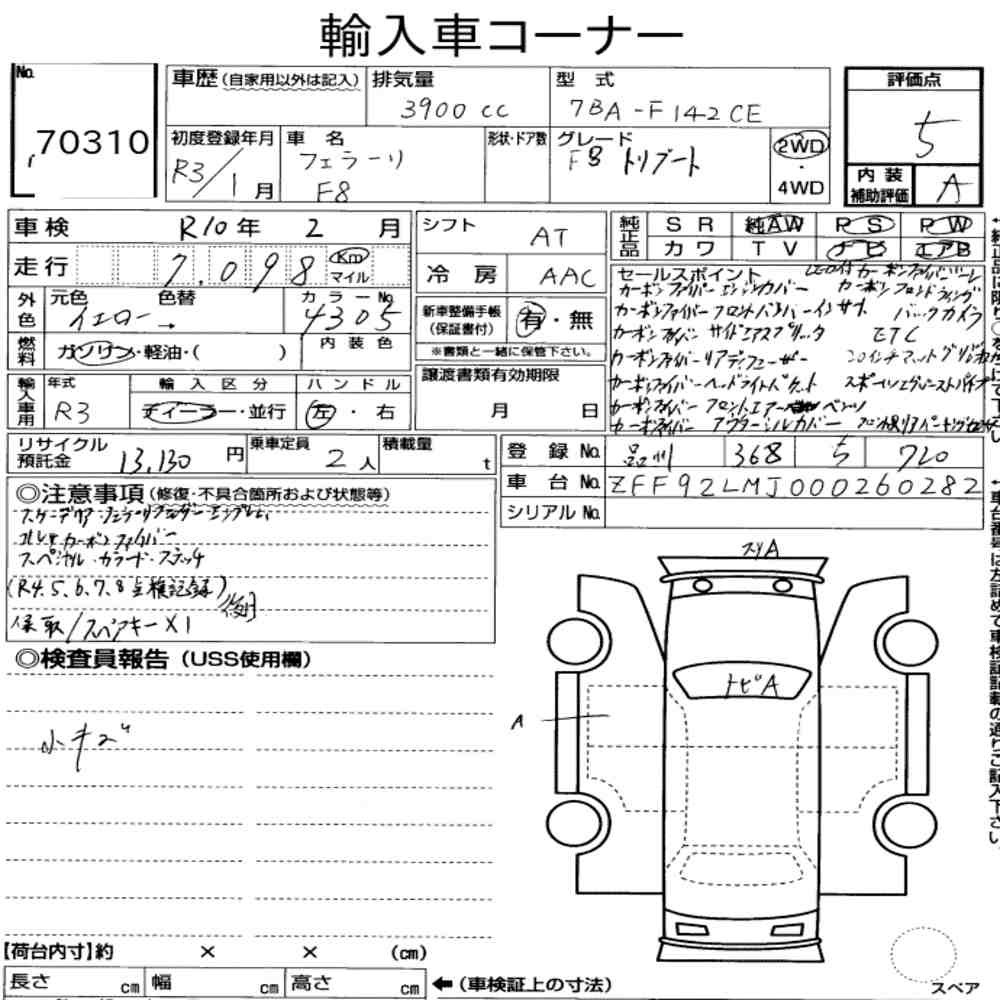 輸入車コーナー
No. 70310
車歴 (自家用以外は記入)
排気量 3900 cc
型式 7BA-F142CE
評価点 5
内装補助評価 A
初度登録年月 R3/1月
車名 フェラーリ F8
形状・ドア数
グレード F8 トリブート
2WD・4WD
車検 R10年 2月
走行 7,098 Km マイル
外色 元色 イエロー → 色替 カラーNo. 4305
燃料 ガソリン・軽油・( ) 内装色
輸入車用 年式 R3 輸入区分 ディーラー・並行 ハンドル 左・右
シフト AT
冷房 AAC
新車整備手帳(保証書付) 有・無
※書類と一緒に保管下さい。
譲渡書類有効期限 月 日
純正品 SR 純AW PS PW
カワ TV ナビ エアB
セールスポイント
カーボンファイバーエンジンカバー
カーボンファイバーフロントバンパーインサート バックカメラ
カーボンファイバーサイドエアスプリッタ ETC
カーボンファイバーリアディフューザー
カーボンファイバーヘッドライトバケット
カーボンファイバーフロントエアーベンツ
カーボンファイバーアウターシルカバー
リサイクル預託金 13,130円
乗車定員 2人
積載量 t
登録No. 品川 368 5 720
車台No. ZFF92LMJ000260282
シリアルNo.
◎注意事項 (修復・不具合箇所および状態等)
スクーデリア・フェラーリフェンダーエンブレム
カーボンファイバー
スペシャル・カラード・ステッチ
(R4.5.6.7.8点検記録)
保取/スペアキーX1 後日
◎検査員報告 (USS使用欄)
小キズ
スリA
トビA
A
【荷台内寸】約 × × (cm)
長さ cm 幅 cm 高さ cm
←(車検証上の寸法)
スペア